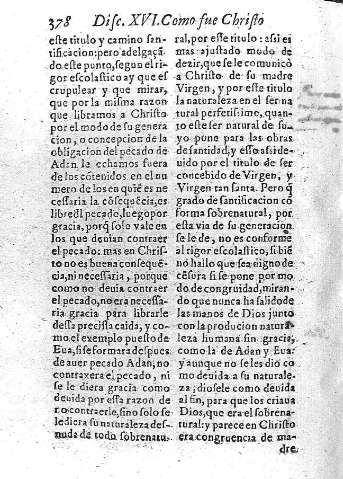 378 Disc. XVI. Como fue Christo
este titulo y camino san-
tificacion; pero adelgaçã
do este punto, segun el ri-
gor escolastico ay que es
crupulear y que mirar,
que por la misma razon
que libramos a Christo
por el modo de su genera
cion, o concepcion de la
obligacion del pecado de
Adan la echamos fuera
de los cõtenidos en el nu
mero de los en quiẽ es ne
cessaria la cõsequẽcia, es
libre dl pecado, luego por
gracia, porq̃ solo vale en
los que deuian contraer
el pecado: mas en Chris-
to no es buena consequẽ-
cia, ni necessaria, porque
como no deuia contraer
el pecado, no era necessa-
ria gracia para librarle
dessa precissa caida, y co-
mo el exemplo puesto de
Eua, si se formara despues
de auer pecado Adan, no
contraxera el pecado, ni
se le diera gracia como
deuida por essa razon de
no contraerle, sino solo se
le diera su naturaleza des-
nuda de todo sobrenatu-
ral, por este titulo: assi es
mas ajustado modo de
dezir, que se le comunicò
a Christo de su madre
Virgen, y por este titulo
la naturaleza en el ser na
tural perfetissimo, quan-
to este ser natural de su-
yo pone para las obras
de santidad, y esso assi de-
uido por el titulo de ser
concebido de Virgen, y
Virgen tan santa. Pero q̃
grado de santificacion cõ
forma sobrenatural, por
esta via de su generacion
se le de, no es conforme
al rigor escolastico, si biẽ
nò hallo que sea digno de
cẽsura si se pone por mo
do de congruidad, miran-
do que nunca ha salido de
las manos de Dios junto
con la producion natura
leza humana sin gracia,
como la de Adan y Eua:
y aunque no se les diò co
mo deuida a su naturale-
za, diosele como deuida
al fin, para que los criaua
Dios, que era el sobrena-
tural: y parece en Christo
era congruencia de ma-
dre